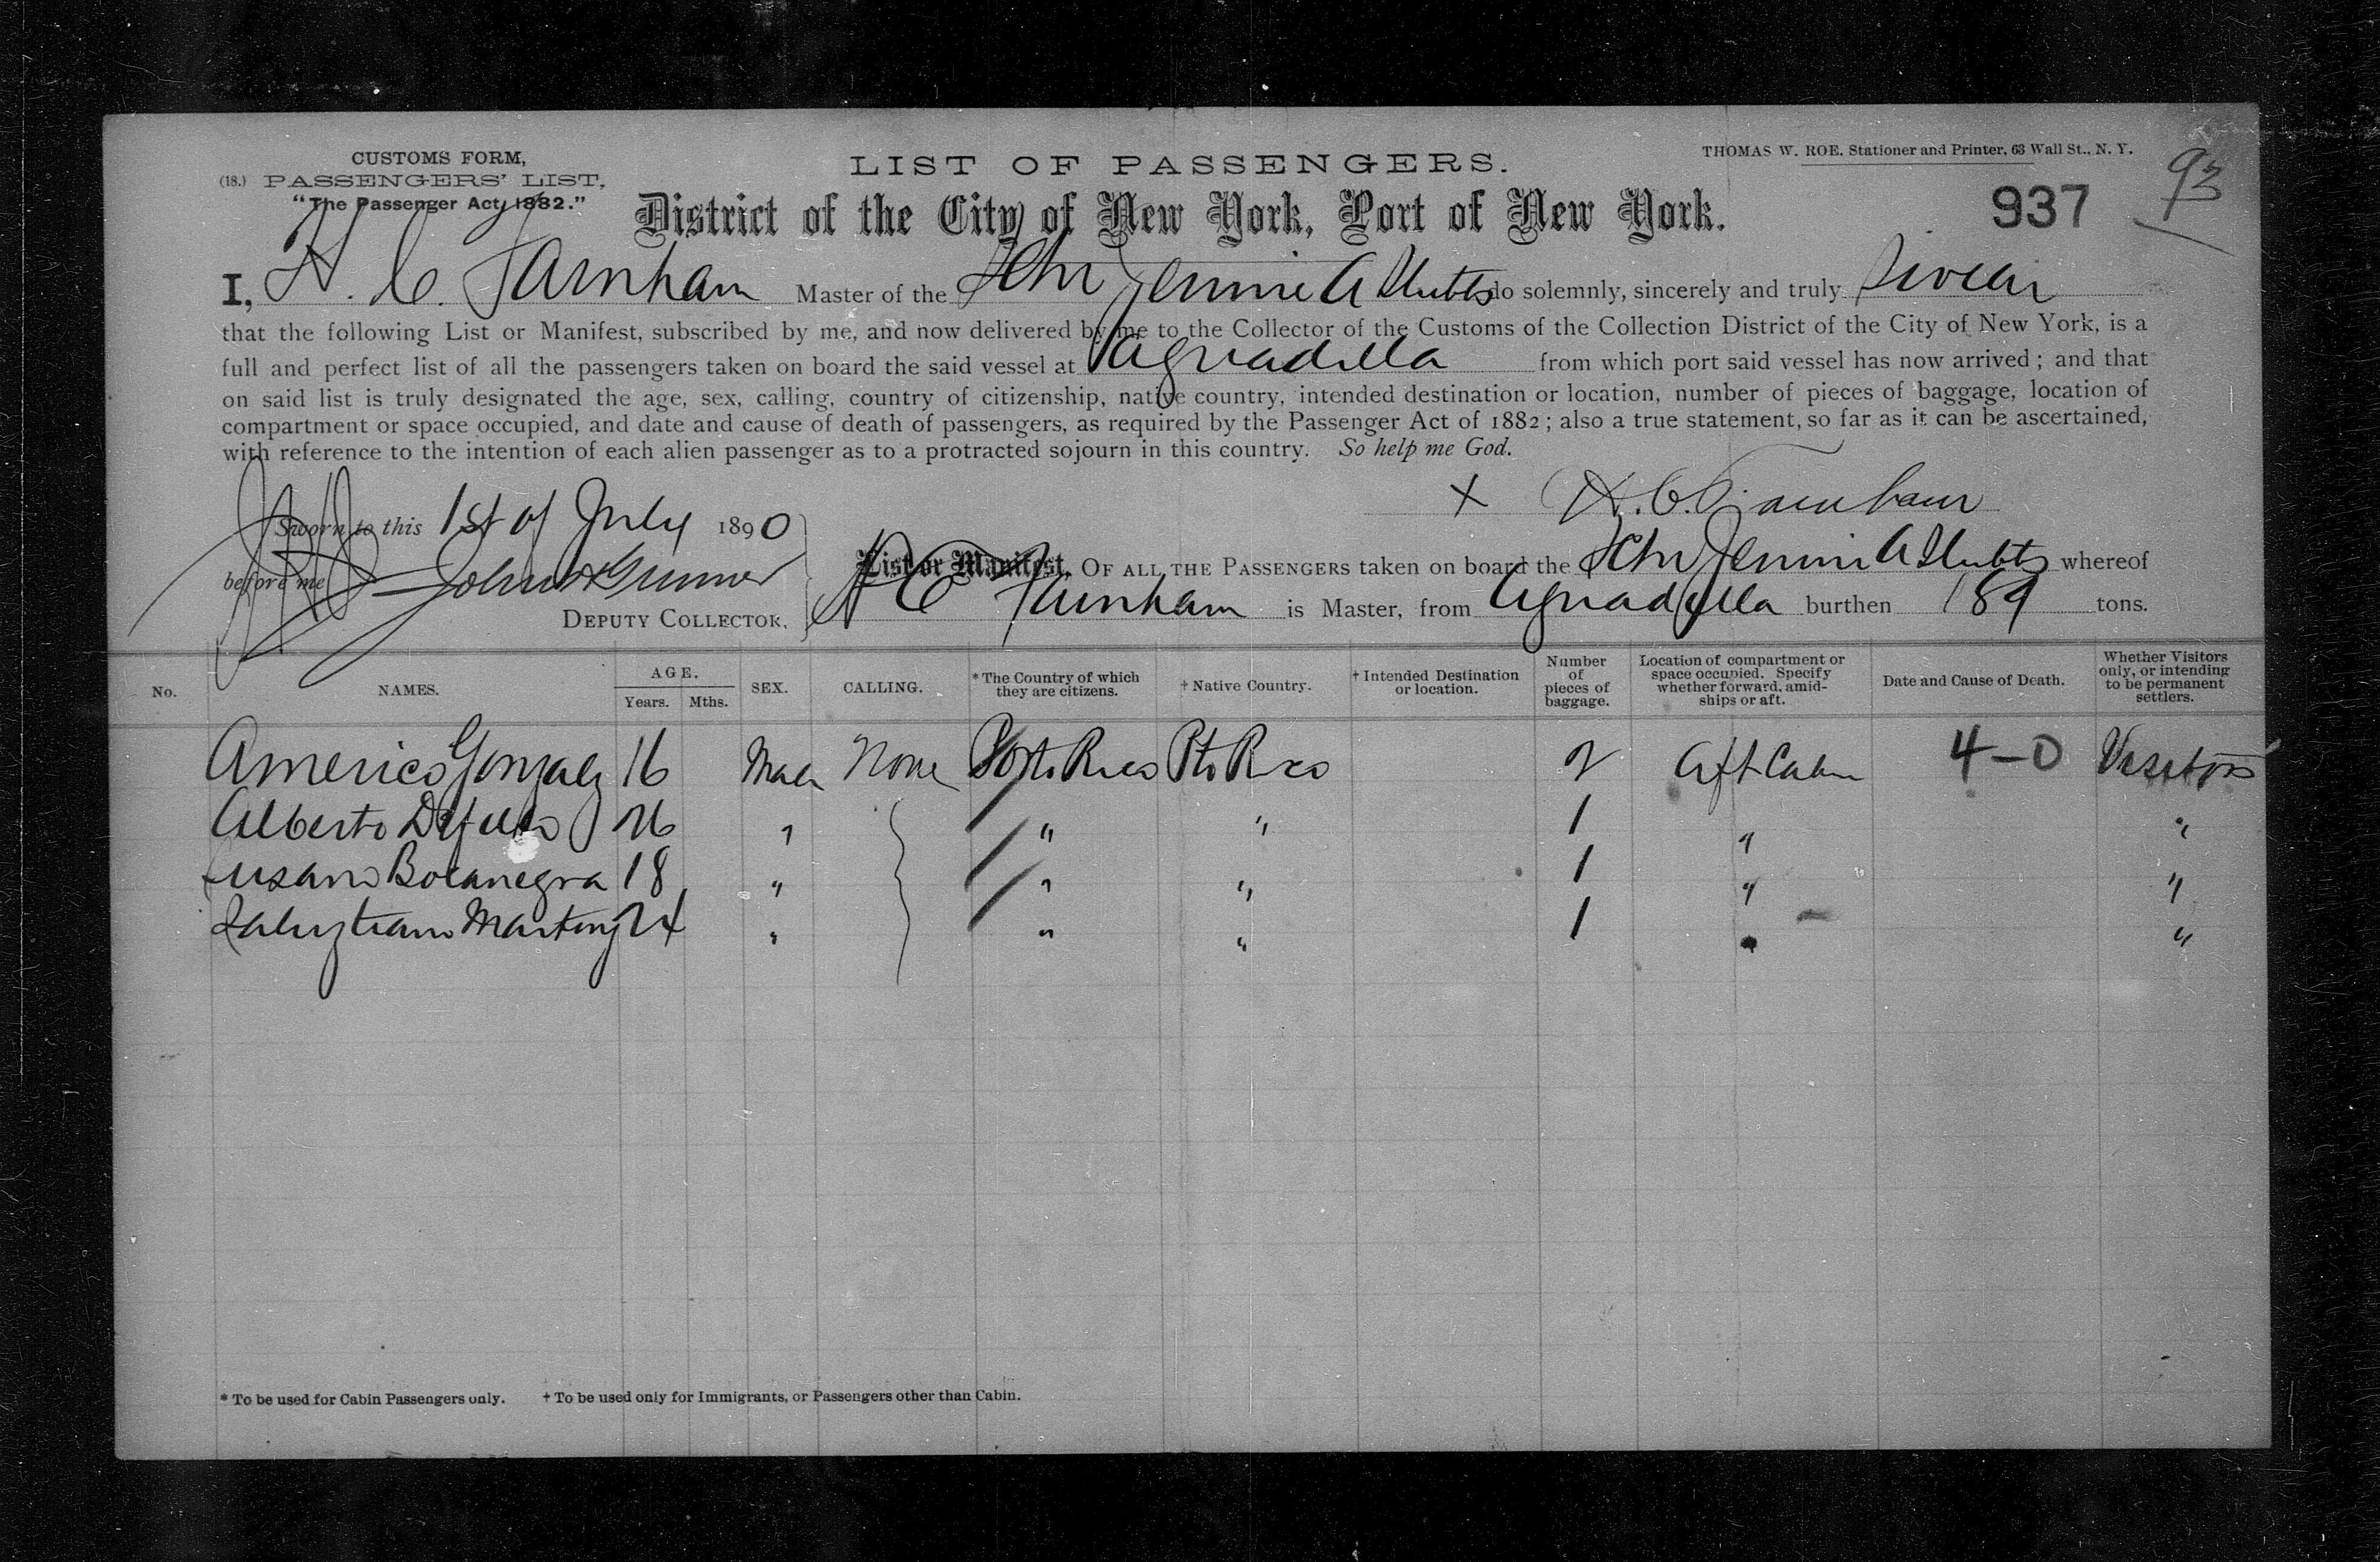 CUSTOMS FORM,
(18.) PASSENGERS' LIST,
"The Passenger Act, 1882."
LIST OF PASSENGERS.
THOMAS W. ROE, Stationer and Printer, 63 Wall St., N. Y.
93
District of the City of New York, Port of New York.
937
I, H. C. Farnham Master of the Schr Jennie A Stubbs do solemnly, sincerely and truly swear
that the following List or Manifest, subscribed by me, and now delivered by me to the Collector of the Customs of the Collection District of the City of New York, is a
full and perfect list of all the passengers taken on board the said vessel at Aguadilla from which port said vessel has now arrived; and that
on said list is truly designated the age, sex, calling, country of citizenship, native country, intended destination or location, number of pieces of baggage, location of
compartment or space occupied, and date and cause of death of passengers, as required by the Passenger Act of 1882; also a true statement, so far as it can be ascertained,
with reference to the intention of each alien passenger as to a protracted sojourn in this country. So help me God.
x H. C. Farnham
Sworn to this 1st of July 1890
before me John
DEPUTY COLLECTOR.
List or Manifest, OF ALL THE PASSENGERS taken on board the Schr Jennie A Stubbs whereof
H C Farnham is Master, from Aguadilla burthen 189 tons.
No. NAMES. AGE. Years. Mths. SEX. CALLING. * The Country of which they are citizens. † Native Country. † Intended Destination or location. Number of pieces of baggage. Location of compartment or space occupied. Specify whether forward, amidships or aft. Date and Cause of Death. Whether Visitors only, or intending to be permanent settlers.
Americo Gonzalez 16 Male None Porto Rico Pto Rico 2 Aft Cabin 4-0 Visitors
Alberto 26 " " " 1 " "
Susano Bocanegra 18 " " " 1 " "
Salustiano Martinz 24 " " " 1 " "
* To be used for Cabin Passengers only. † To be used only for Immigrants, or Passengers other than Cabin.